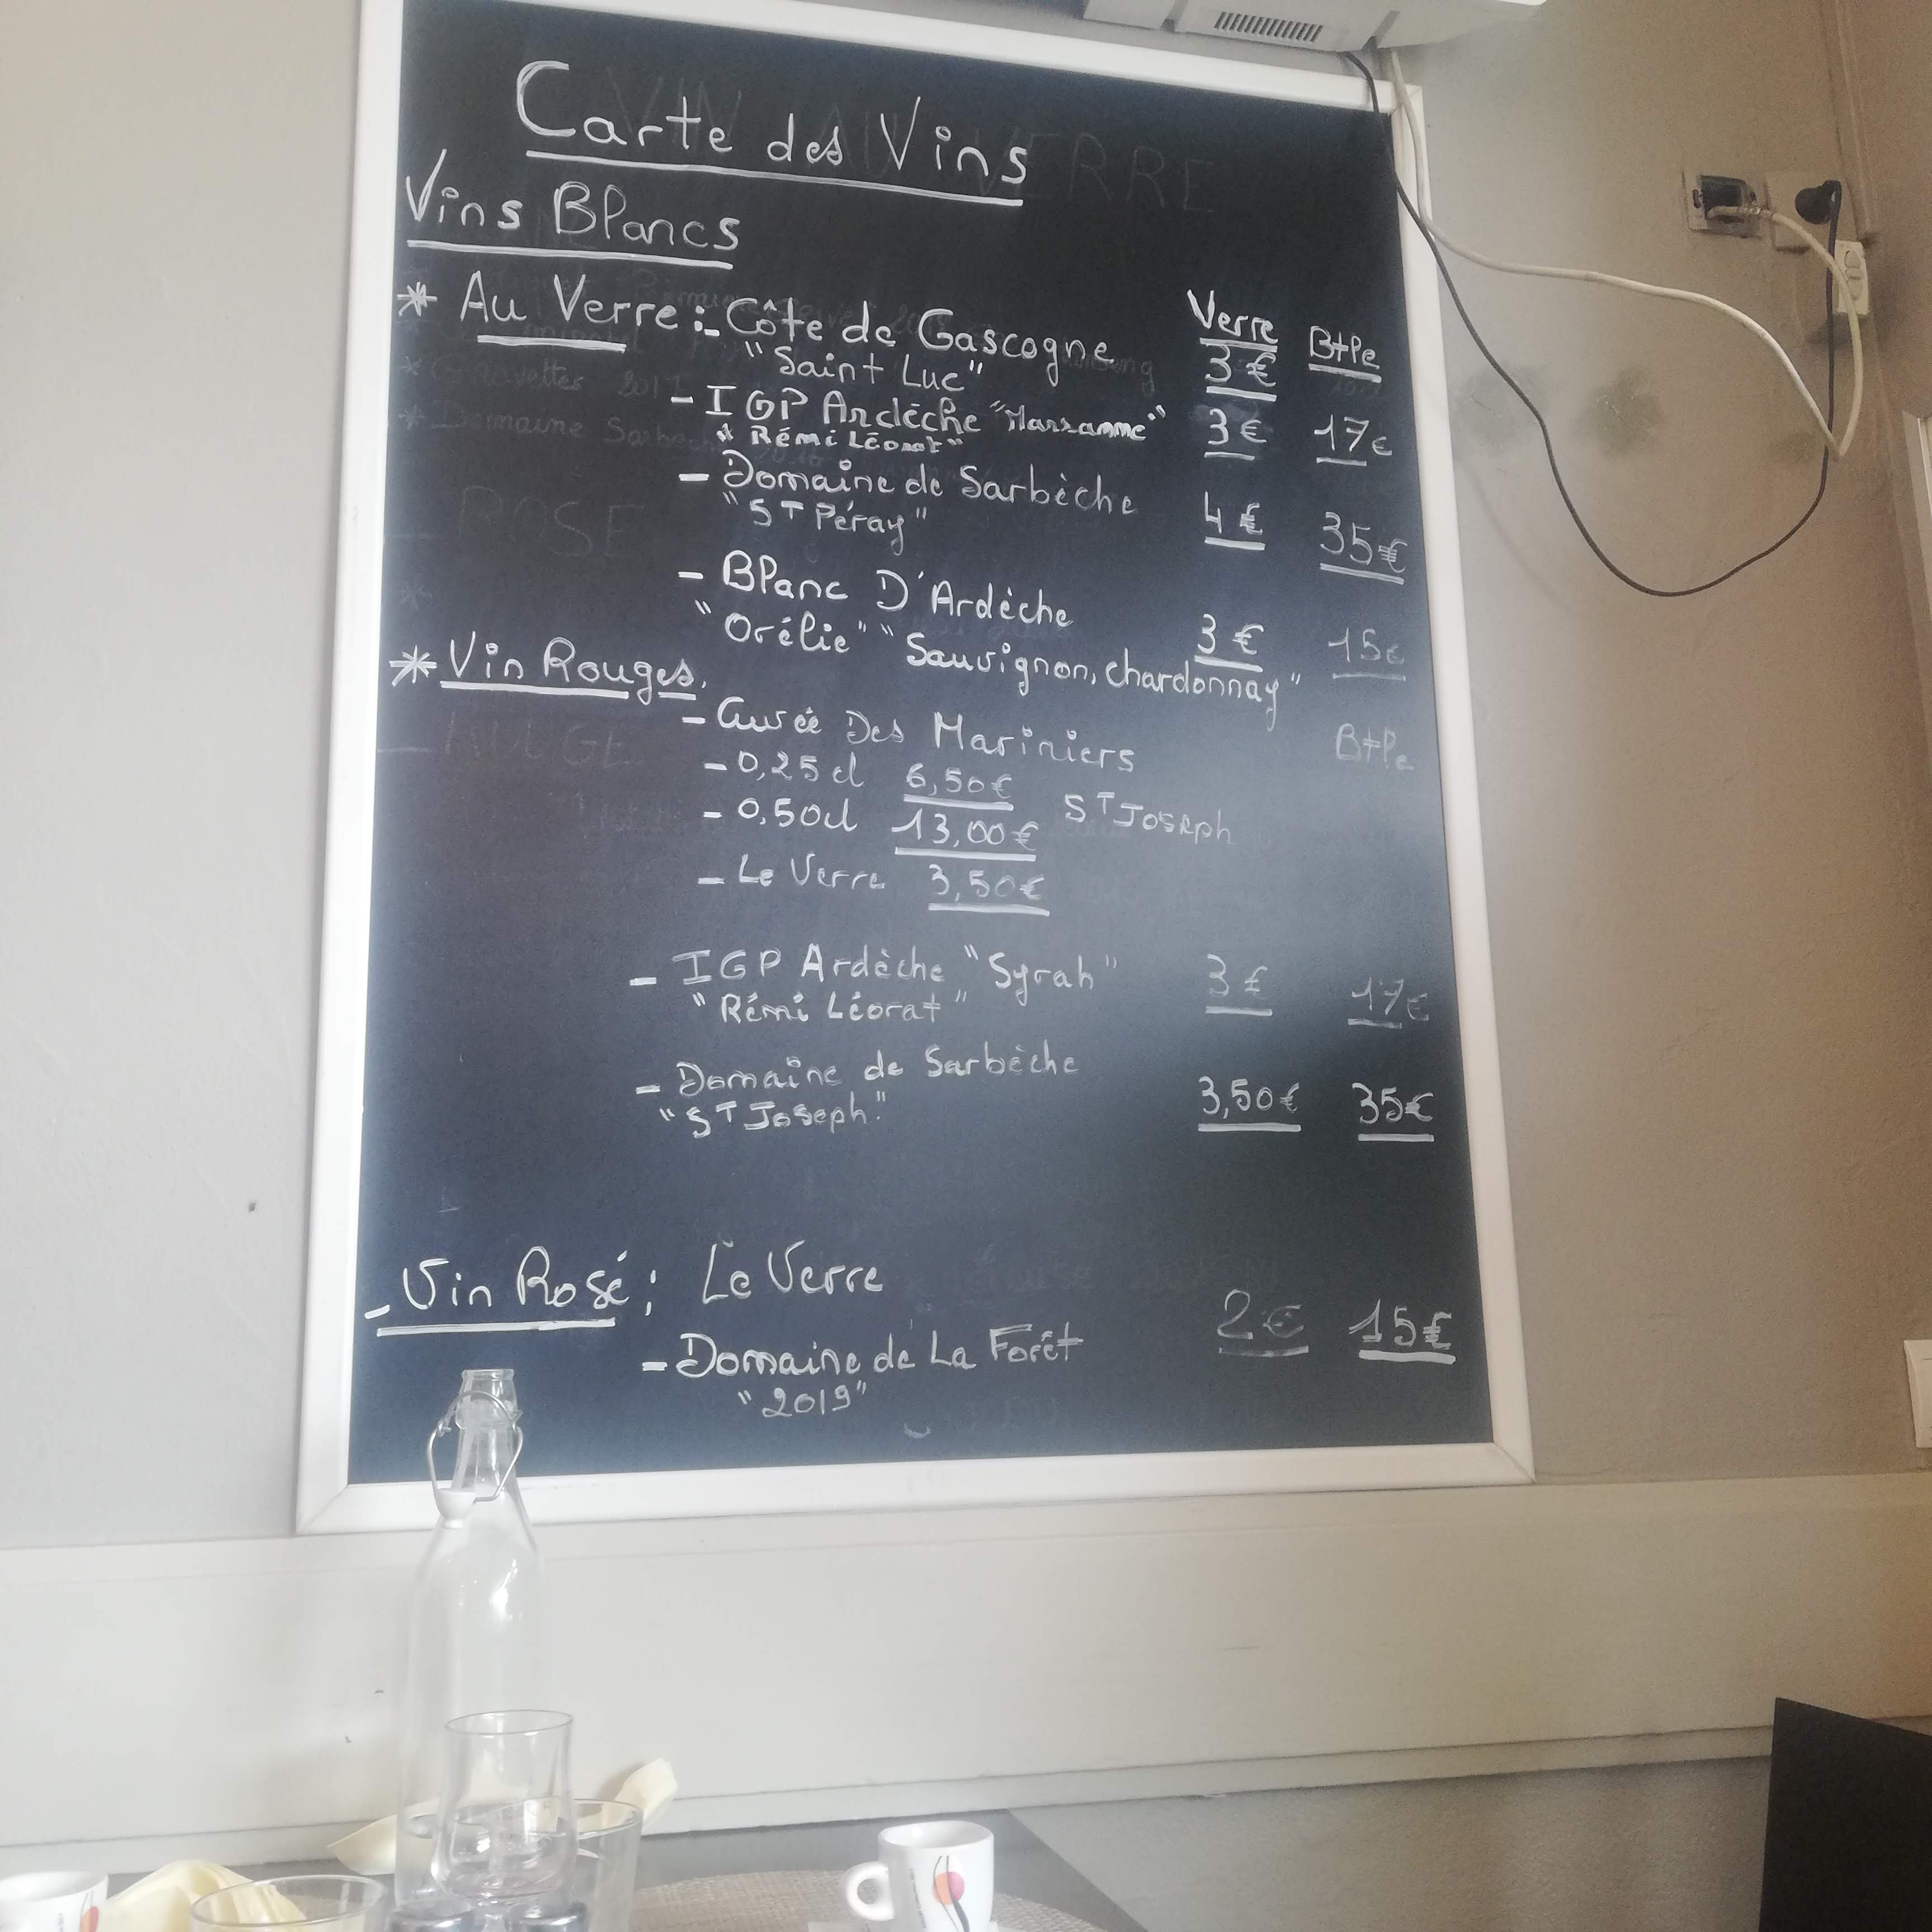 Carte des Vins
Vins Blancs
* Au Verre :- Côte de Gascogne
"Saint Luc"
Verre Btlle
3€
- IGP Ardèche "Marsanne" 3€ 17€
"Rémi Léorat"
- Domaine de Sarbèche
"ST Péray" 4€ 35€
- Blanc D'Ardèche
"Orélie" "Sauvignon, chardonnay" 3€ 15€
* Vin Rouges.
- Cuvée Des Mariniers Btlle
- 0,25cl 6,50€
- 0,50cl 13,00€ ST Joseph
- Le Verre 3,50€
- IGP Ardèche "Syrah" 3€ 17€
"Rémi Léorat"
- Domaine de Sarbèche 3,50€ 35€
"ST Joseph"
- Vin Rosé : Le Verre
2€ 15€
- Domaine de La Forêt
"2019"
VIN AU VERRE
* Domaine Sarbèche
ROSE
ROUGE